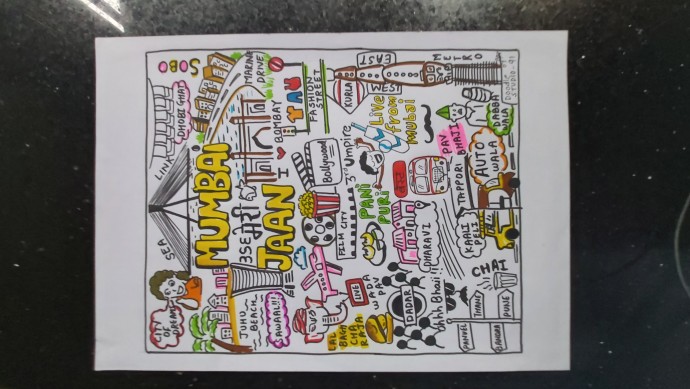 SOBO
DHOBI GHAT
MARINE
DRIVE
LINK
SEA
CITY
OF
DREAMS
MUMBAI
मेरी
JAAN
I ❤ BOMBAY
FASHION
STREET
KURLA
EAST
WEST
METRO
DOODLE
STUDIO-91
Live
from
Mubai
DABBA
WALA
PAV
BHAJI
AUTO
WALA
TAPPORI
Bollywood
3rd Umpire
FILM CITY
PANI
PURI
बेस्ट
DHARAVI
KAALI
PELI
JUHU
BEACH
SAWAAL!!!
LIVE
WADA
PAV
LAL
BAGH
CHA
RAJA
DADAR
Uhhh Bhai!!
CHAI
PANVEL
THANE
BANDRA
PUNE